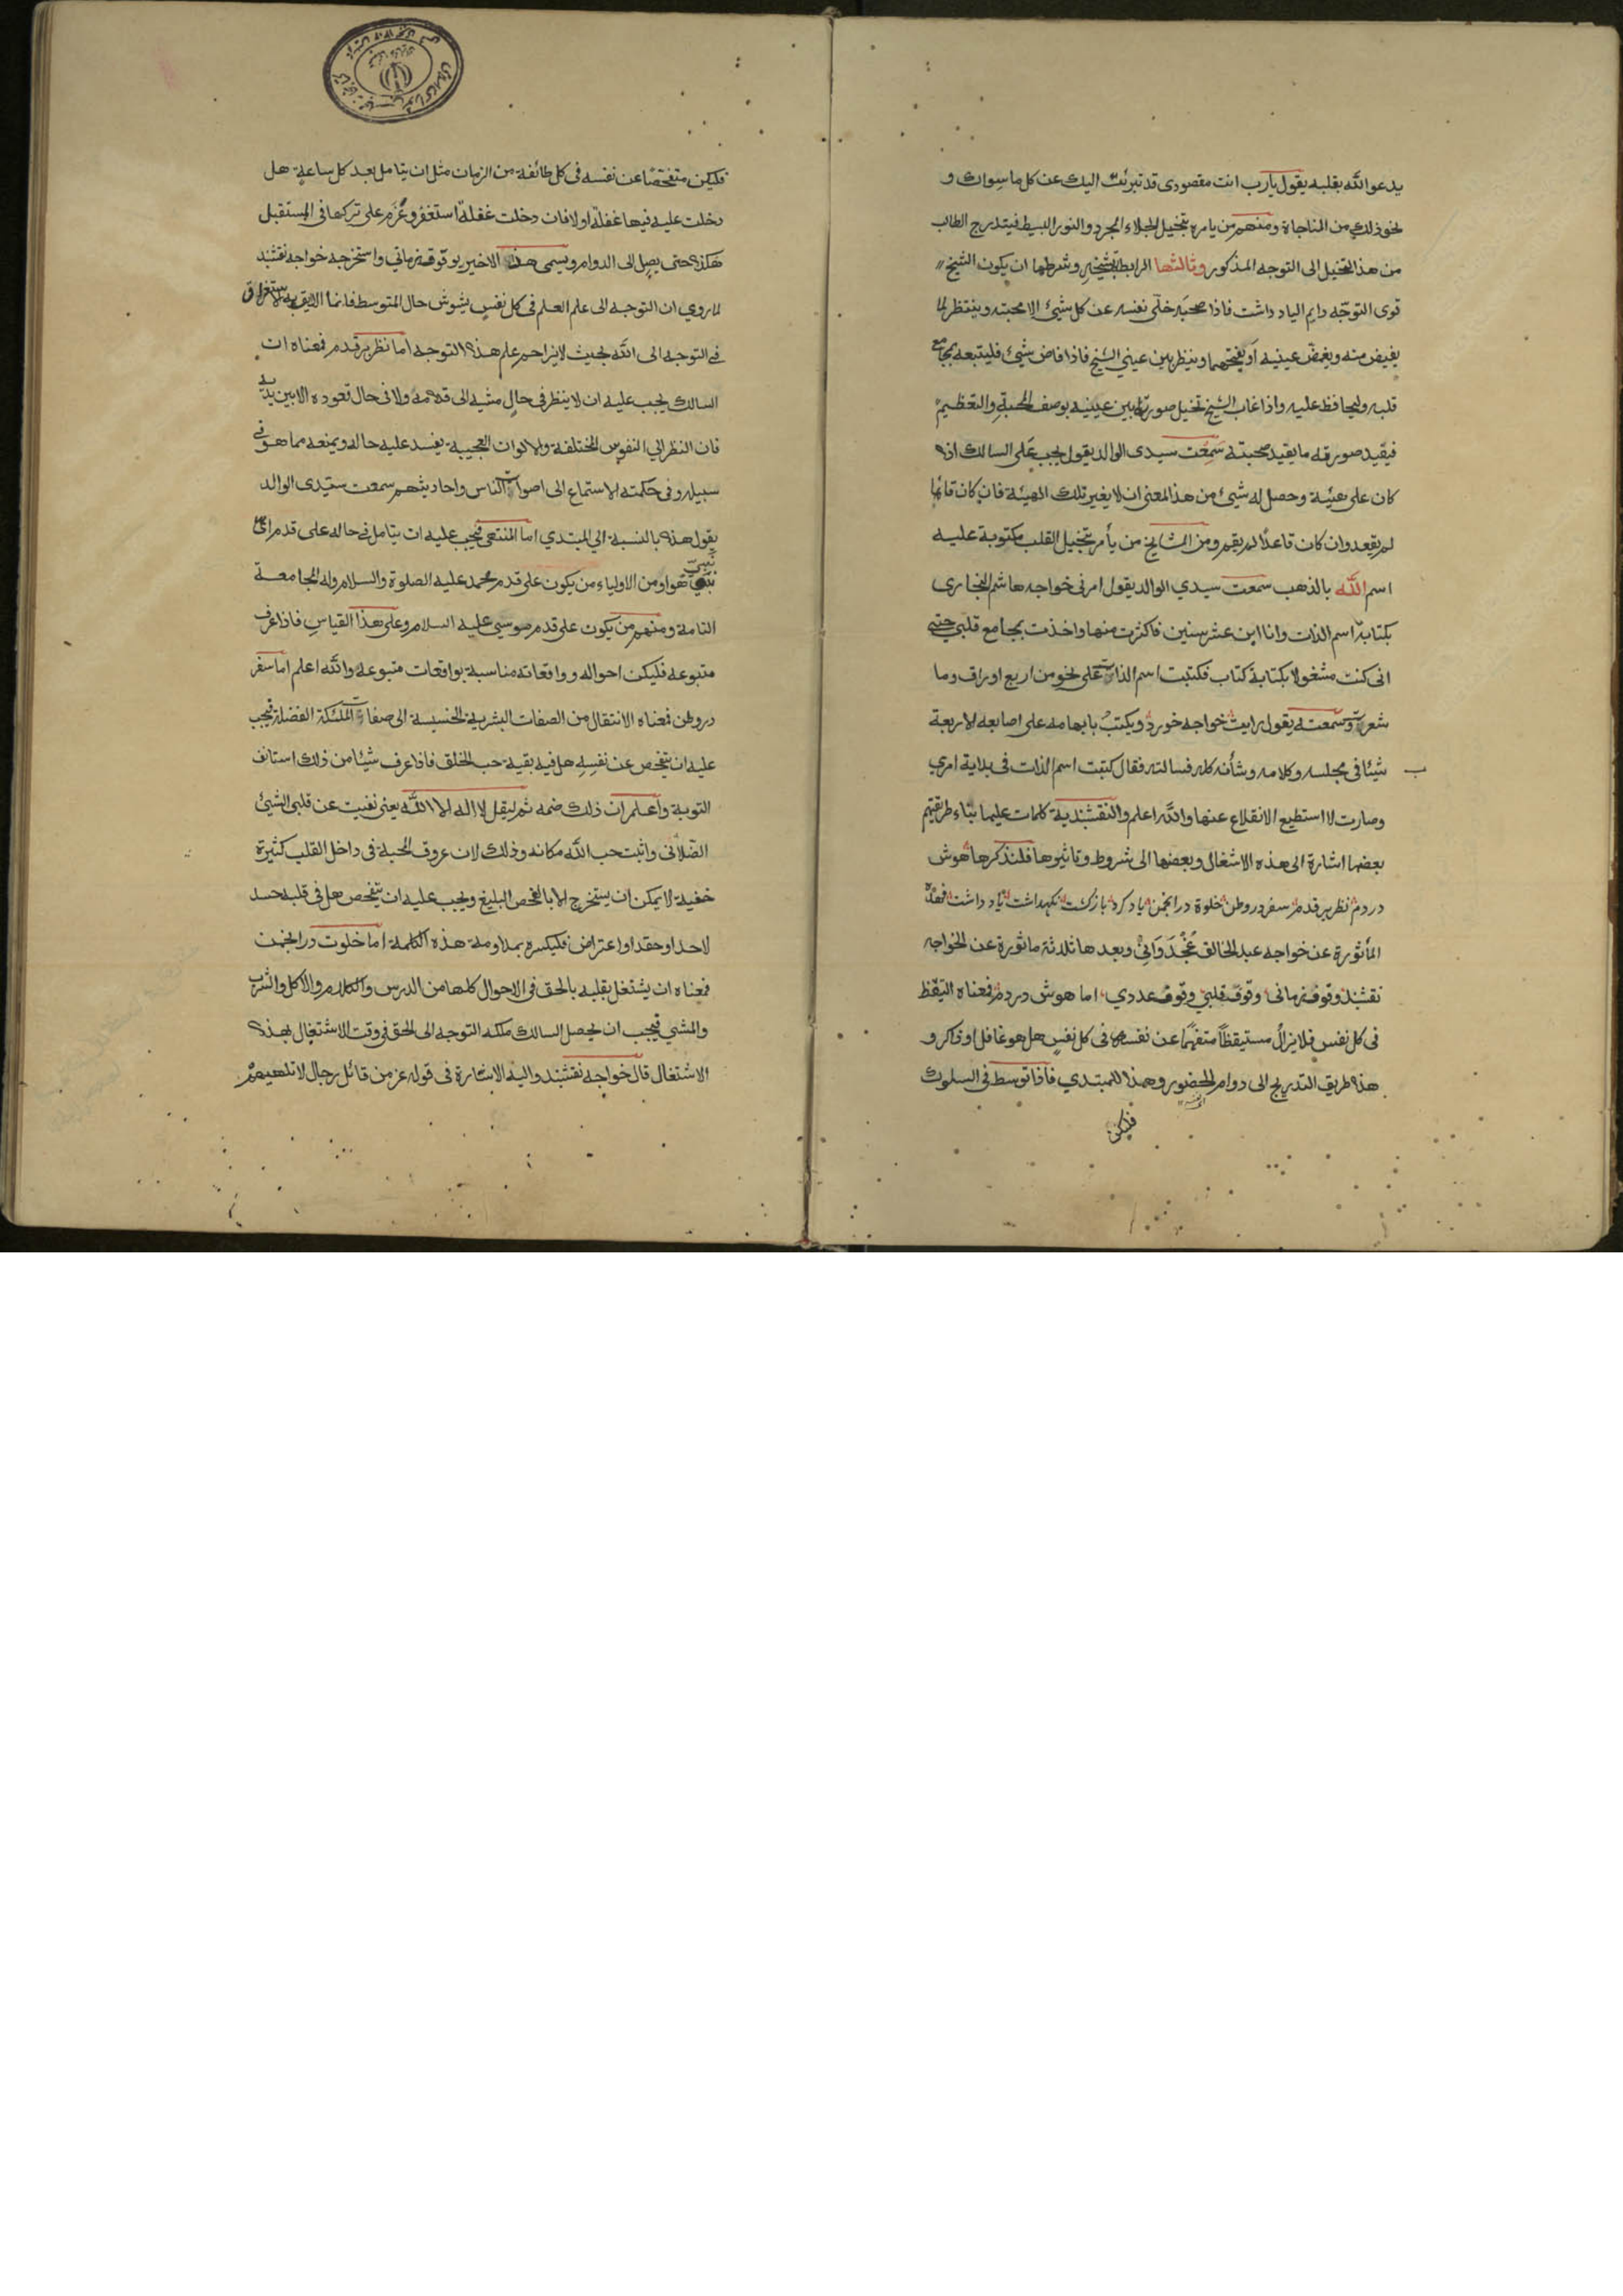 يدعو الله بقلبه يقول يارب انت مقصودى قد تبرئت اليك عن كل ما سواك و
نحو ذلك من المناجاة ومنهم من يامره بتخيل الجلاء المجرد والنور البسيط فيتدرج الطالب
من هذا التخيل الى التوجه المذكور وثالثها الرابطة بشيخه وشرطها ان يكون الشيخ
قوى التوجّه دايم الياد داشت فاذا صحبه خلّى نفسه عن كل شيئ الا محبته وينتظر لما
يفيض منه ويغمض عينيه او يفتحهما وينظر بين عيني الشيخ فاذا فاض شيئ فليتبعه بمجامع
قلبه وليحافظ عليه واذا غاب الشيخ تخيل صورته بين عينيه بوصف المحبة والتعظيم
فيفيد صورته ما يفيد صحبته سمعت سيدى الوالد يقول يجب على السالك اذا
كان على هيئة وحصل له شيئ من هذا المعنى ان لا يغير تلك الهيئة فان كان قائما
لم يقعد وان كان قاعدًا لم يقم ومن المشايخ من يأمر بتخيل القلب مكتوبة عليه
اسم الله بالذهب سمعت سيدي الوالد يقول امرنى خواجه هاشم البخارى
بكتابة اسم الذات وانا ابن عشر سنين فاكثرت منها واخذت بمجامع قلبي حتى
انى كنت مشغولا بكتابة كتاب فكتبت اسم الذات على نحو من اربع اوراق وما
شعرت وسمعته يقول رايت خواجه خورد ويكتب بابهامه على اصابعه الاربعة
شيئا فى مجلسه وكلامه وشأنه كله فسالته فقال كتبت اسم الذات فى بداية امري
وصارت لا استطيع الانقلاع عنها والله اعلم وللنقشبندية كلمات عليها بناء طريقتهم
بعضها اشارة الى هذه الاشغال وبعضها الى شروط وتاثيرها فلنذكرها هوش
دردم نظر بر قدم سفر در وطن خلوة در انجمن ياد كرد بازگشت نگهداشت ياد داشت فهذه
المأثورة عن خواجه عبد الخالق غُجْدَوَانِيْ وبعدها ثلاثة ماثورة عن الخواجه
نقشبند وقوف زمانى وقوف قلبي وقوف عددي اما هوش دردم فمعناه التيقظ
فى كل نفس فلا يزال مستيقظًا متفهّمًا عن نفسه فى كل نفس هل هو غافل او ذاكر و
هذا طريق التدريج الى دوام الحضور وهذا للمبتدي فاذا توسط فى السلوك
فليكن
فليكن متفحّصًا عن نفسه فى كل طائفة من الزمان مثل ان يتامل بعد كل ساعة هل
دخلت عليه فيها غفلة او لا فان دخلت غفلة استغفر وعزم على تركها فى المستقبل
هكذا حتى يصل الى الدوام ويسمى هذا الاخير بوقوف زمانى واستخرجه خواجه نقشبند
لما روي ان التوجه الى علم العلم فى كل نفس يشوش حال المتوسط فانما اللايق به الاستغراق
فى التوجه الى الله بحيث لا يزاحمه علم هذا التوجه اما نظر بر قدم فمعناه ان
السالك يجب عليه ان لا ينظر فى حال مشيه الى قدمه ولا فى حال قعوده الا بين يديه
فان النظر الي النفوس المختلفة والالوان العجيبة يفسد عليه حاله ويمنعه مما هو فى
سبيله وفى حكمته الاستماع الى اصوات الناس واحاديثهم سمعت سيّدى الوالد
يقول هذا بالنسبة الي المبتدي اما المنتهي فيجب عليه ان يتامل فى حاله على قدم اى
نبى هو اذ من الاولياء من يكون على قدم محمد عليه الصلوة والسلام وله الجامعة
التامة ومنهم من يكون على قدم موسى عليه السلام وعلى هذا القياس فاذا عرف
متبوعه فليكن احواله وواقعاته مناسبة بواقعات متبوعه والله اعلم اما سفر
در وطن فمعناه الانتقال من الصفات البشرية الخسيسة الى صفات الملكية الفضلة فيجب
عليه ان يتفحص عن نفسه هل فيه بقية حب الخلق فاذا عرف شيئا من ذلك استانف
التوبة واعلم ان ذلك ضمه ثم ليقل لا اله الا الله يعنى نفيت عن قلبى الشيئ
الفلانى واثبت حب الله مكانه وذلك لان عروق المحبة فى داخل القلب كثيرة
خفية لا يمكن ان يستخرج الا بالفحص البليغ ويجب عليه ان يتفحص هل فى قلبه حسد
لاحد او حقد او اعتراض فليكسره بمداومة هذه الكلمة اما خلوت در انجمن
فمعناه ان يشتغل بقلبه بالحق فى الاحوال كلها من الدرس والكلام والاكل والشرب
والمشي فيجب ان يحصل السالك ملكه التوجه الى الحق فى وقت الاشتغال بهذه
الاشتغال قال خواجه نقشبند واليه الاشارة فى قوله عز من قائل رجال لا تلهيهم